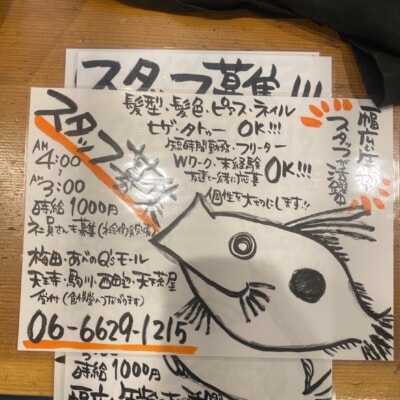 スタッフ募集!!!
スタッフ募集!!
髪型・髪色・ピアス・ネイル
ヒゲ・タトゥー OK!!!
短時間勤務・フリーター
Wワーク・未経験 OK!!!
友達と一緒に応募
個性を大切にします!!
幅広い年齢
スタッフが
AM
4:00
〜
AM
3:00
時給 1000円
社員さんも募集
梅田・あべのQ'sモール
天王寺・駒川・西田辺・天下茶屋
06-6629-1215
時給 1000円